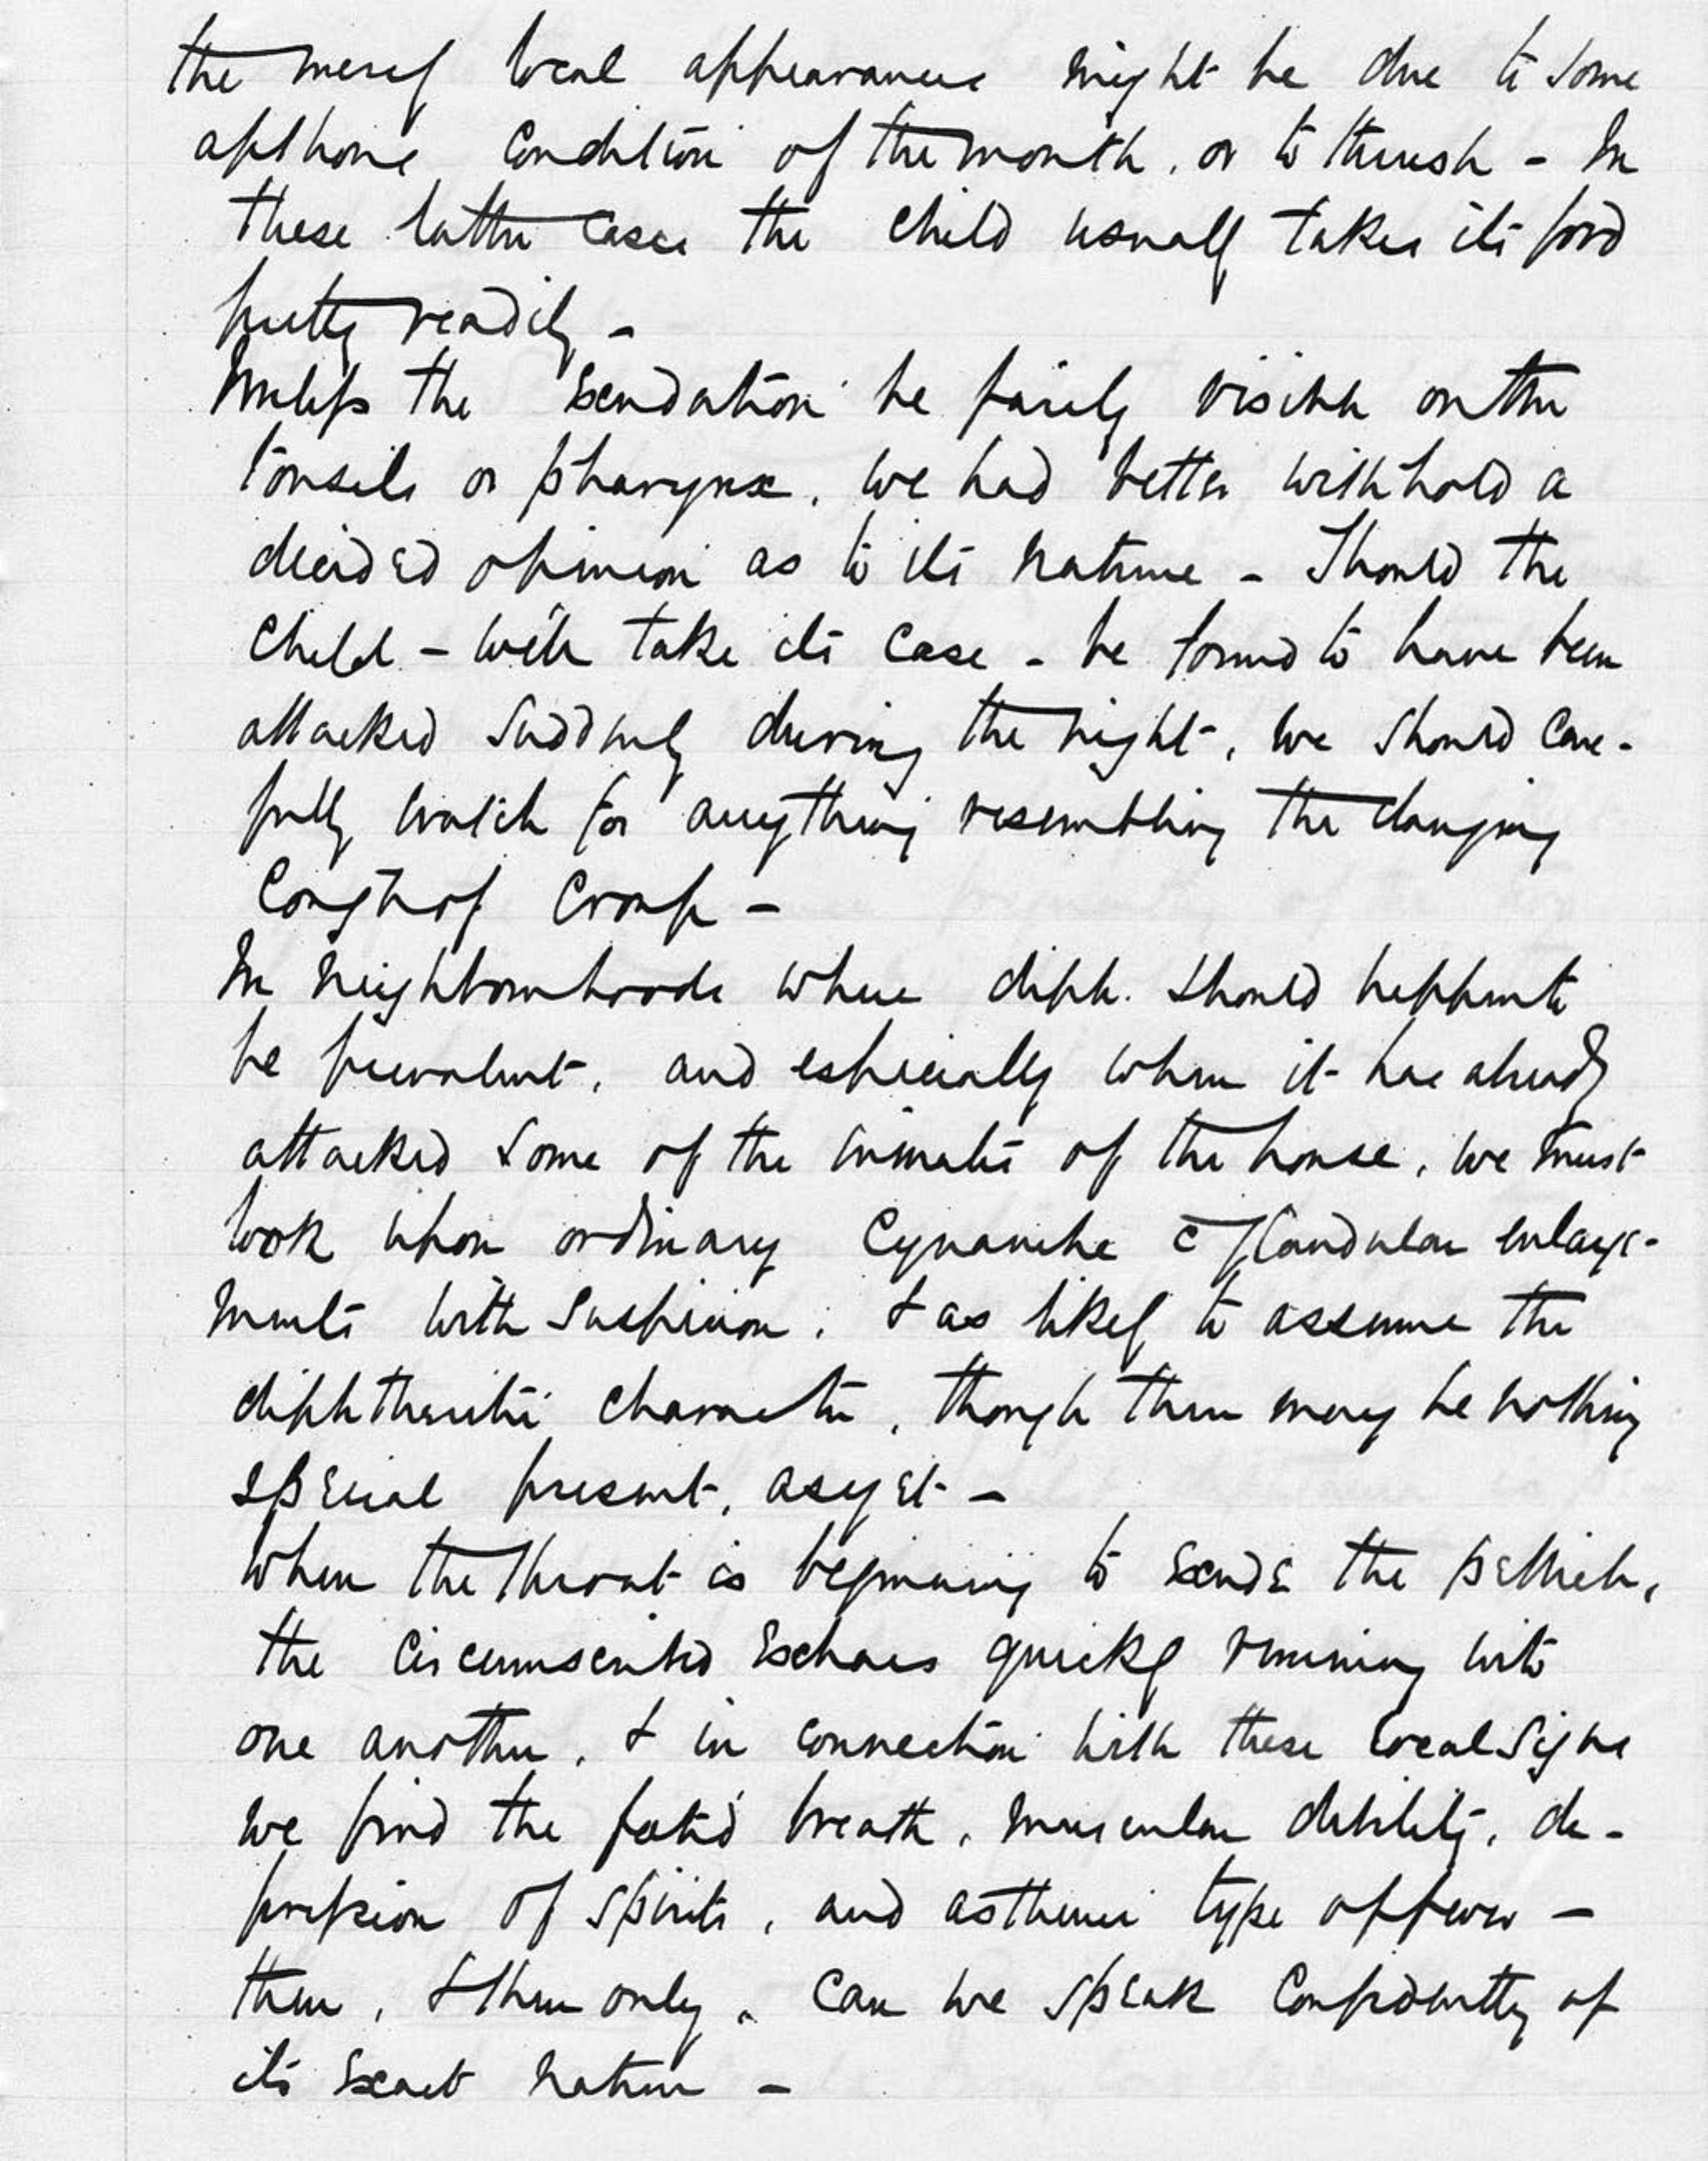 the merely local appearances might be due to some
apthous condition of the mouth, or to thrush – In
these latter cases the child usually takes its food
pretty readily –
Unless the exudation be fairly visible on the
tonsils or pharynx, we had better withhold a
decided opinion as to its nature – Should the
child – we'll take its case – be found to have been
attacked suddenly during the night, we should care-
fully watch for anything resembling the clanging
cough of croup –
In neighbourhoods where diph. should happen to
be prevalent, and especially when it has already
attacked some of the inmates of the house, we must
look upon ordinary Cynanche c̄ glandular enlarge-
ments with suspicion, & as likely to assume the
diphtheritic character, though there may be nothing
special present, as yet –
When the throat is beginning to exude the pellicle,
the circumscribed Eschars quickly running into
one another, & in connection with these local signs
we find the foetid breath, muscular debility, de-
pression of spirits, and asthenic type of fever –
then, & then only, can we speak confidently of
its exact nature –